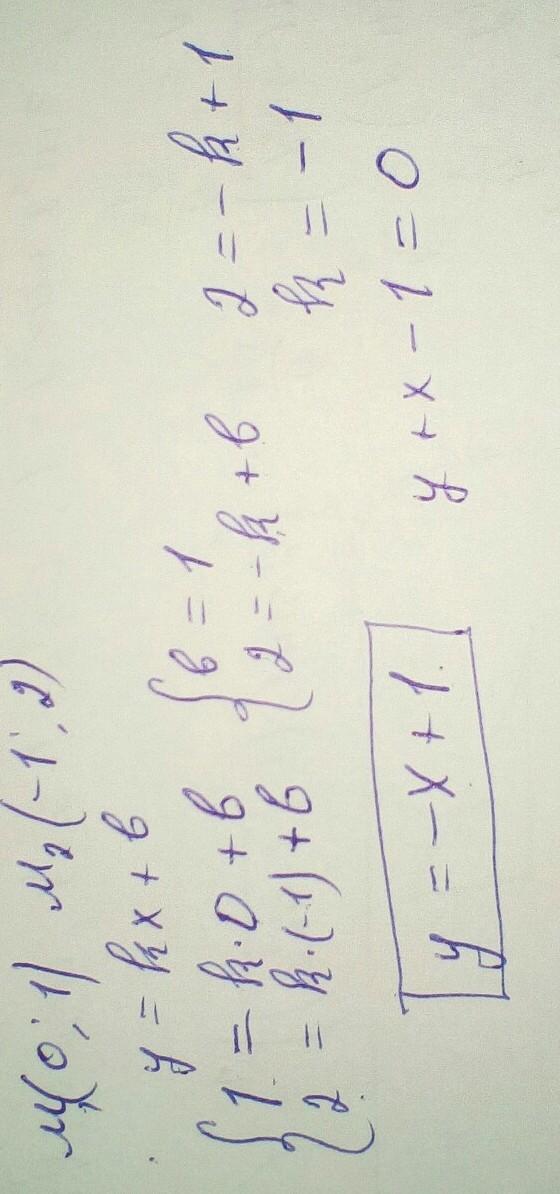 M₁(0; 1) M₂(-1; 2)
y = kx + b
{1 = k·0 + b {b = 1 2 = -k + 1
{2 = k·(-1) + b {2 = -k + b k = -1
y = -x + 1 y + x - 1 = 0